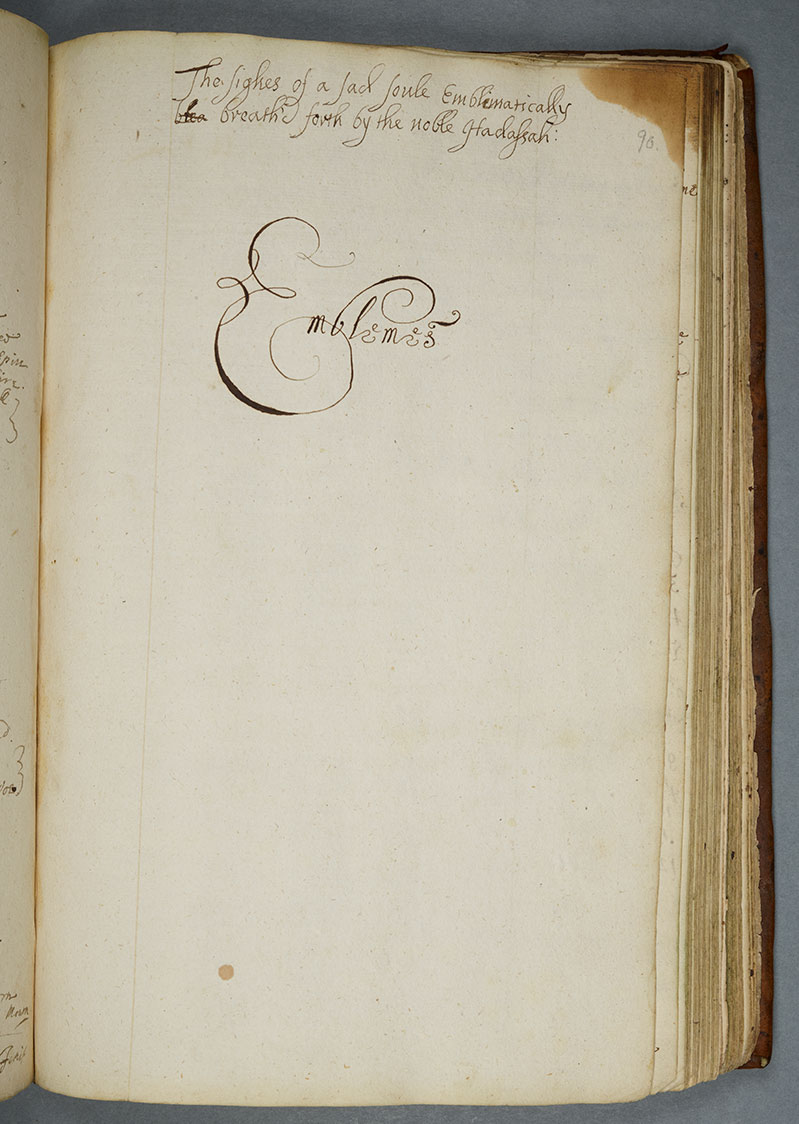 The sighes of a sad soule Emblematically
breath'd forth by the noble Hadassah:
90.
Emblemes